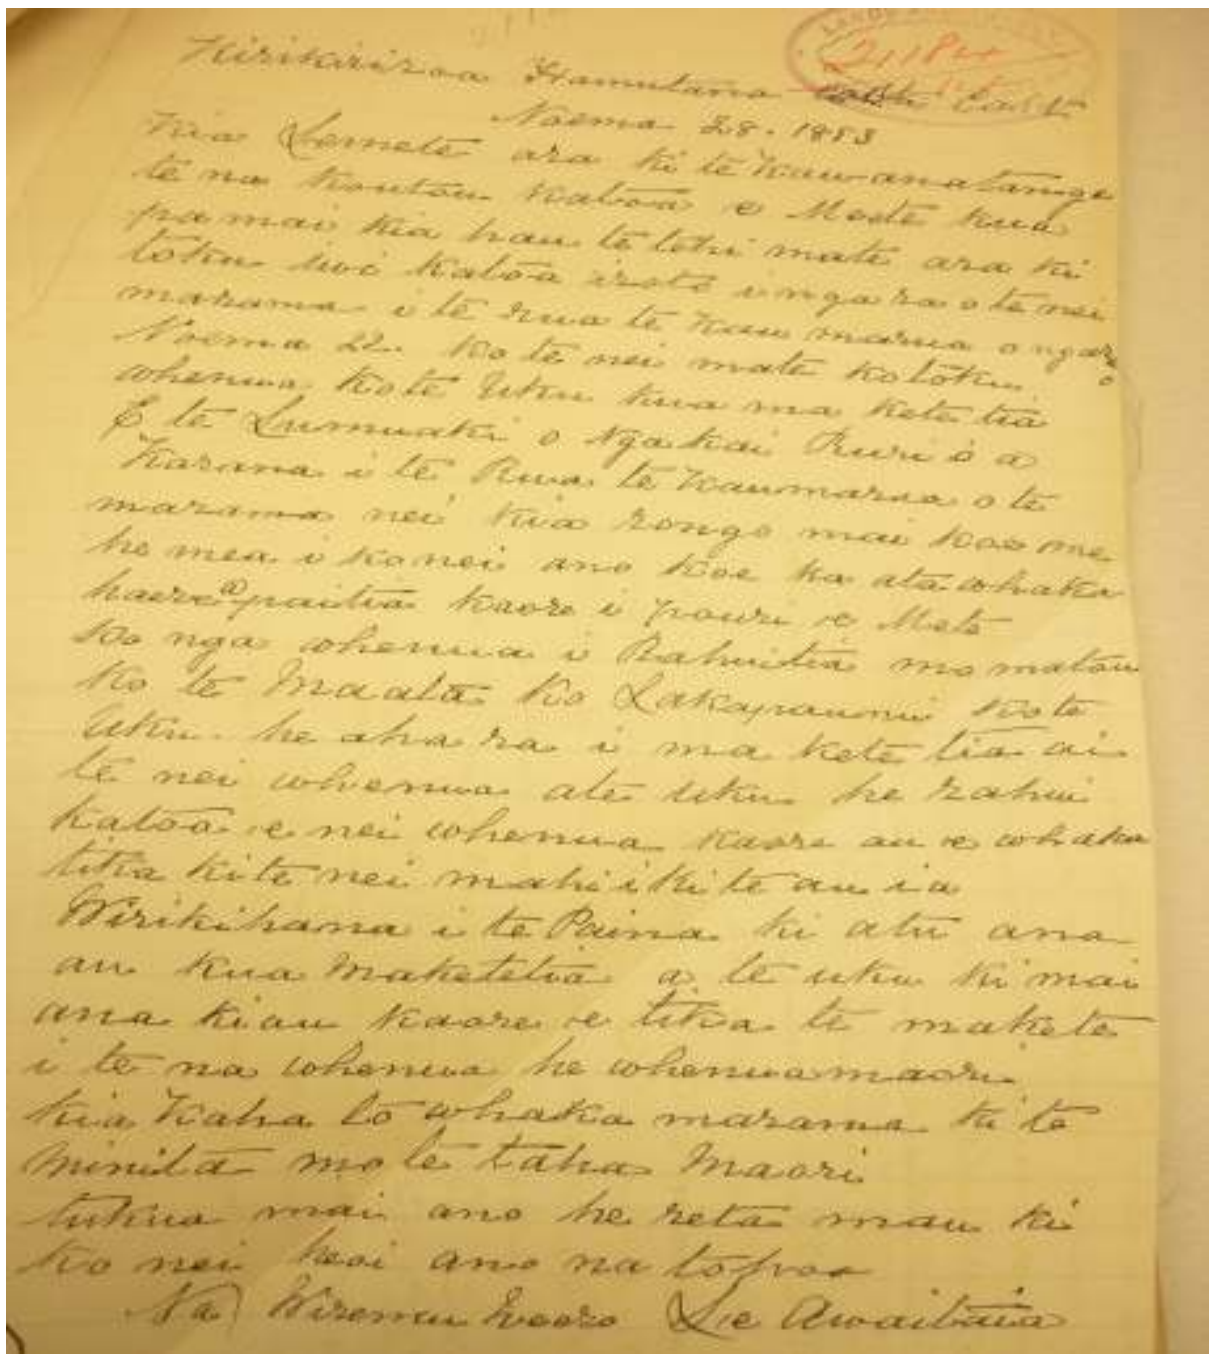 21184
Kirikiriroa Hamutana East
Noema 28. 1883
Kia Lemete ara ki te Kawanatanga
te na koutou katoa e Mete kua
pa mai kia hau te tehi mate ara ki
toku iwi katoa iroto i nga ra o te nei
marama i te rua te kau marua o nga ra o
Noema 22. ko te nei mate ko toku
whenua ko te Uku kua ma kete tia
E te Tumuaki o Nga kai Ruri i a
Karana i te Rua te kaumarua o te
marama nei kia rongo mai koe me
he mea i ko nei ano koe ka ata whaka
haere a paitia kaore i pouri e Mete
Ko nga whenua i Rahuitia mo matou
Ko te Maata Ko Takapaunui Ko te
Uku he aha ra i ma kete tia ai
te nei whenua a te uku he rahui
katoa e nei whenua kaore au e whaka
tika ki te nei mahi i ki te au i a
Wirikihana i te Paina ki atu ana
au kua Maketetia a te uku ki mai
ana ki au kaore e tika te makete
i te na whenua he whenua maori
kia Kaha to whaka marama ki te
minita mo te taha Maori
tukua mai ano he reta mau ki
ko nei heoi ano na to hoa
Na Wiremu Te Awaitaia